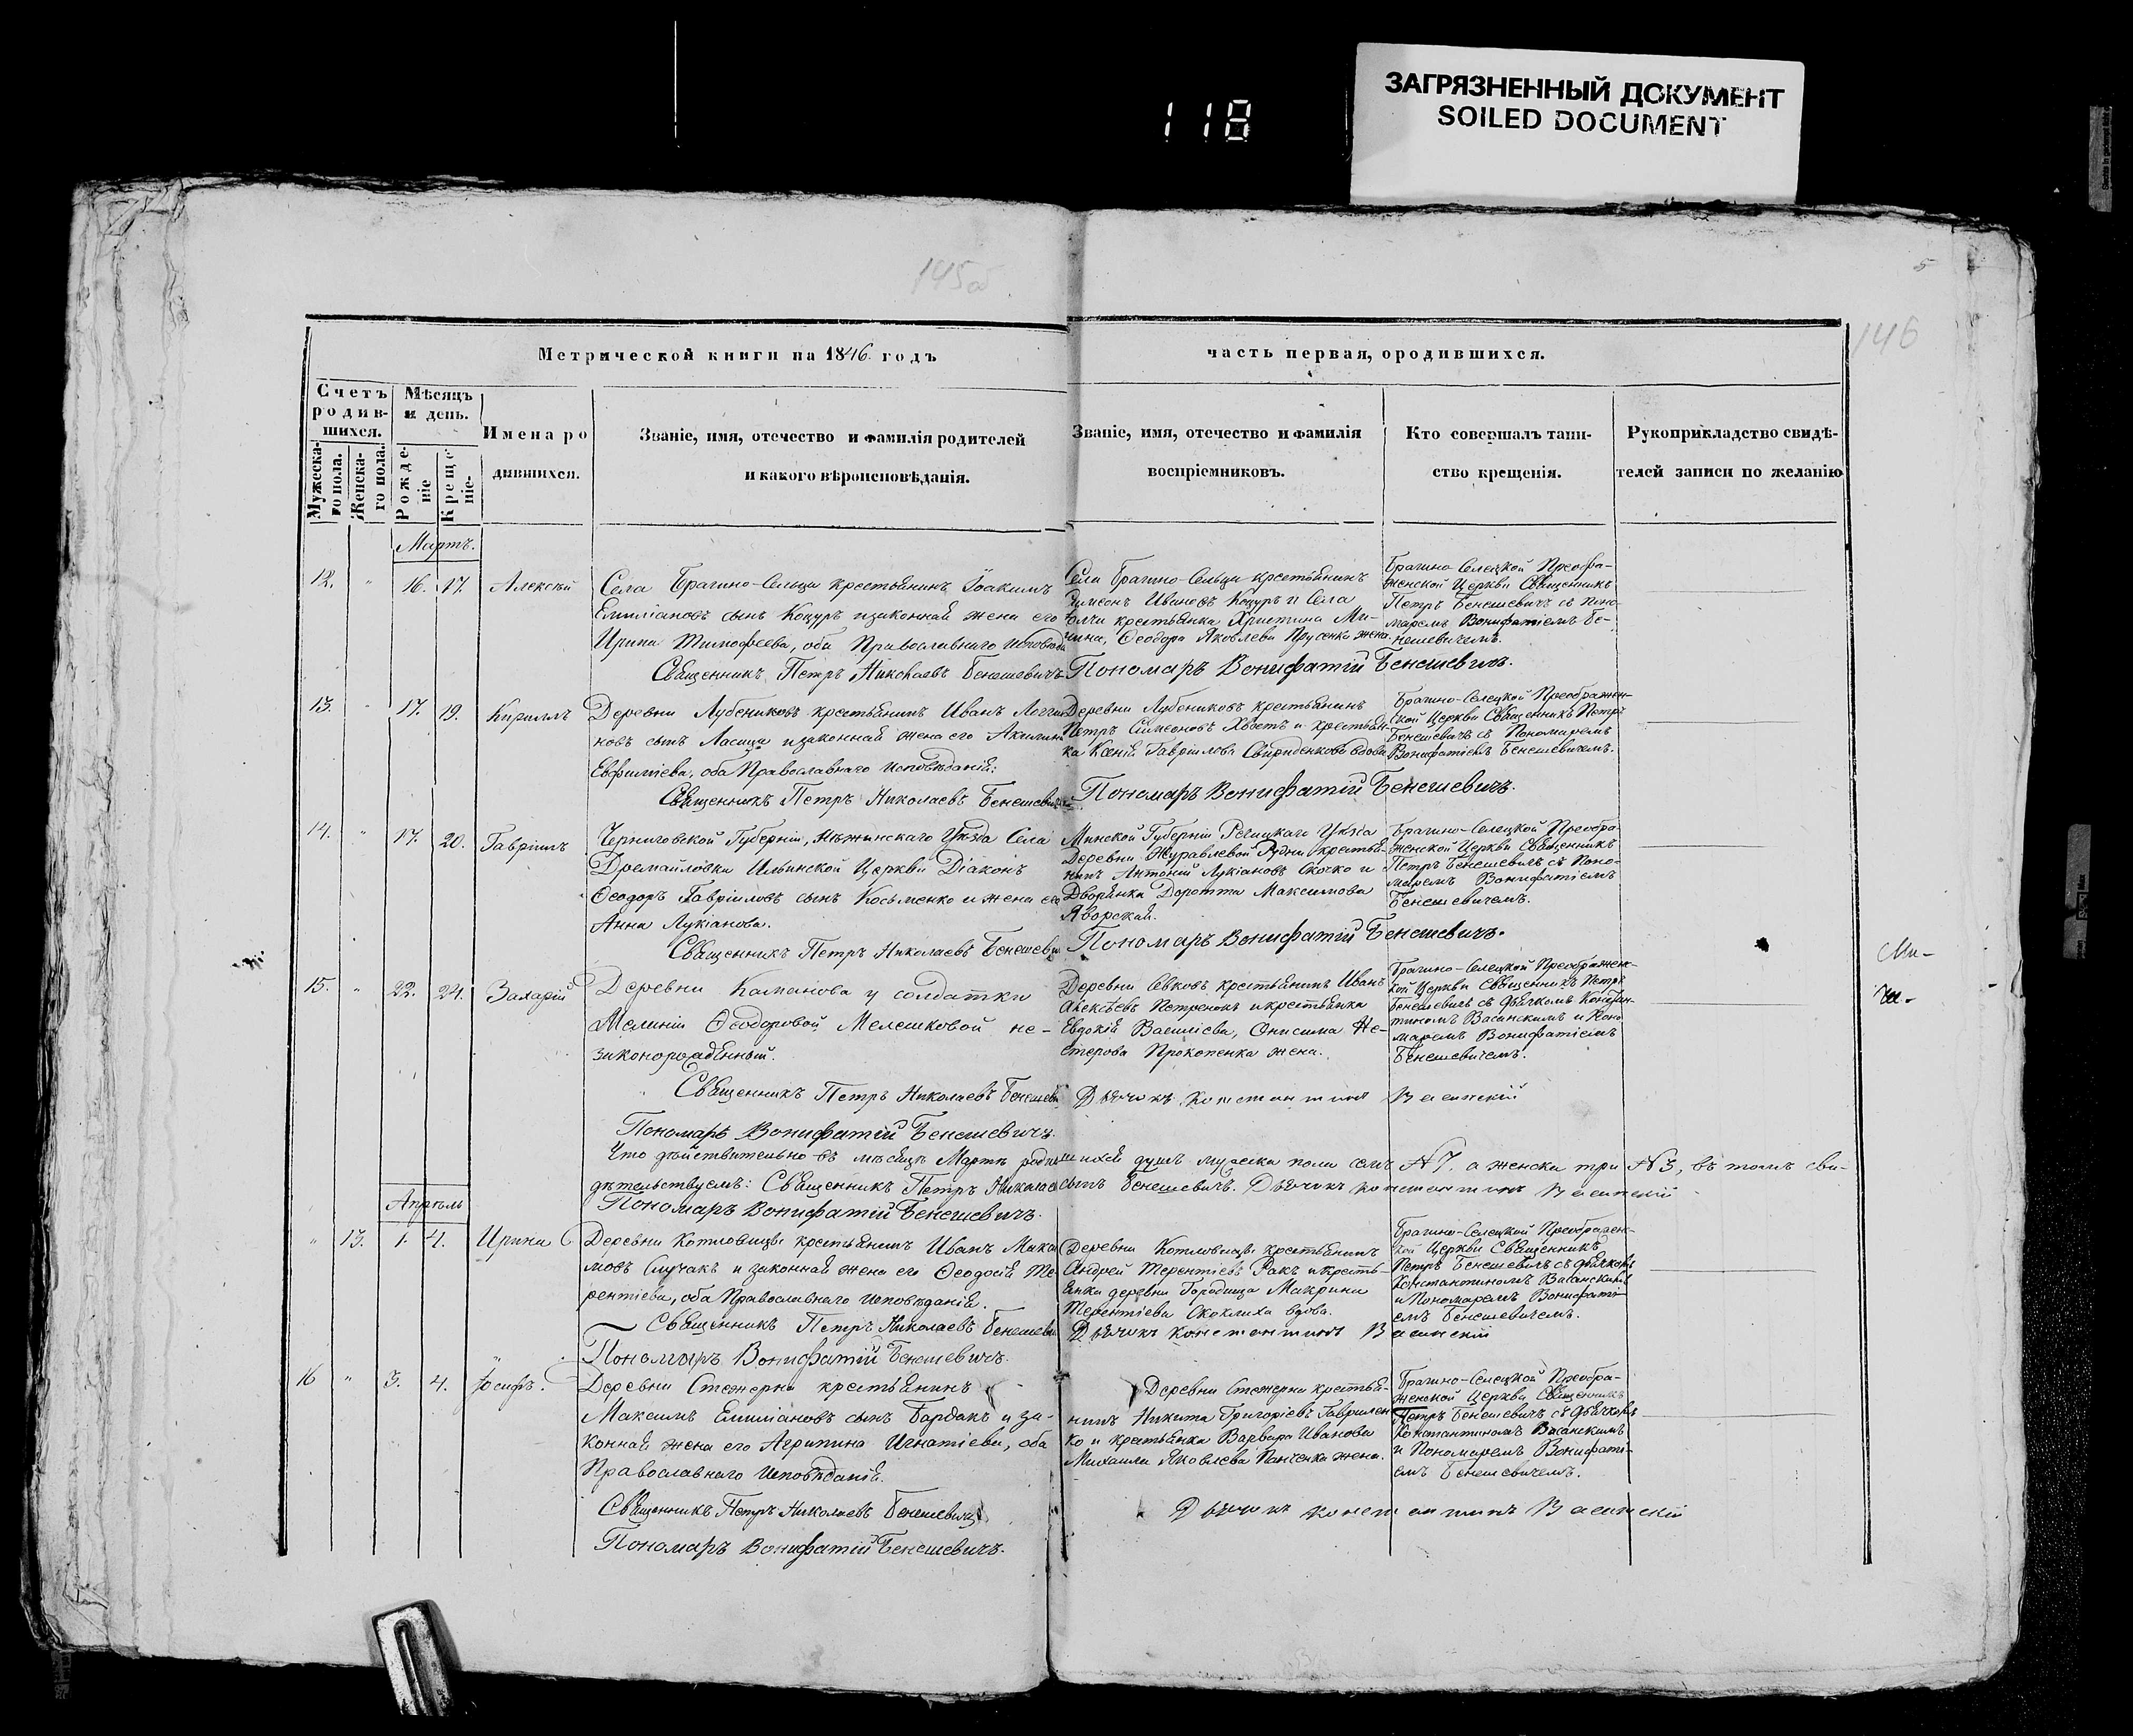 118
ЗАГРЯЗНЕННЫЙ ДОКУМЕНТ
SOILED DOCUMENT
145об
5
146
Метрической книги на 1846 годъ
часть первая, ородившихся.
Счетъ родив-шихся.
Мѣсяцъ и день.
Мужеска-го пола.
Женска-го пола.
Рожде-ніе
Креще-ніе.
Имена ро
дившихся.
Званіе, имя, отечество и фамилія родителей
и какого вѣроисповѣданія.
Званіе, имя, отечество и фамилія
воспріемниковъ.
Кто совершалъ таин-
ство крещенія.
Рукоприкладство свидѣ-
телей записи по желанію
Мартъ.
12. " 16. 17. Алексѣй
Села Брагино-Сельца крестьянинъ Іоакимъ
Емиліановъ сынъ Коцуръ и законная жена его
Ирина Тимофеева, оба Православнаго Исповѣда
Священникъ Петръ Николаевъ Бенешевичъ
Села Брагино-Сельца крестьянинъ
Симеонъ Ивановъ Коцуръ и Села
крестьянка Христина Ми-
нина, Ѳеодора Яковлева Прусенка жена.
Пономаръ Вонифатій Бенешевичъ.
Брагино-Селецкой Преобра-
женской Церкви Священникъ
Петръ Бенешевичъ съ Поно-
маремъ Вонифатіемъ Бе-
нешевичемъ.
13. " 17. 19. Кириллъ
Деревни Лубениковъ крестьянинъ Иванъ Логги
новъ сынъ Ласица и законная жена его Акилина
Евфиміева, оба Православнаго Исповѣданія.
Священникъ Петръ Николаевъ Бенешевичъ
Деревни Лубениковъ крестьянинъ
Петръ Симеоновъ Хвостъ и крестьян-
ка Ксенія Гавріилова Свириденкова вдова
Пономаръ Вонифатій Бенешевичъ.
Брагино-Селецкой Преображен-
ской Церкви Священникъ Петръ
Бенешевичъ съ Пономаремъ
Вонифатіемъ Бенешевичемъ.
14. " 17. 20. Гавріилъ
Черниговской Губерніи, Нѣжинскаго Уѣзда Села
Дремайловки Ильинской Церкви Діаконъ
Ѳеодоръ Гавріиловъ сынъ Косьменко и жена его
Анна Лукіанова.
Священникъ Петръ Николаевъ Бенешеви
Минской Губерніи Рѣчицкаго Уѣзда
Деревни Журавлевой Рудни крестья-
нинъ Антоній Лукіановъ Скочко и
Дворянка Доротта Максимова
Яворская.
Пономаръ Вонифатій Бенешевичъ.
Брагино-Селецкой Преобра-
женской Церкви Священникъ
Петръ Бенешевичъ съ Поно-
маремъ Вонифатіемъ
Бенешевичемъ.
15. " 22. 24. Захарій
Деревни Команова у солдатки
Меланіи Ѳеодоровой Мелешковой не-
законорожденный.
Священникъ Петръ Николаевъ Бенешеви
Пономаръ Вонифатій Бенешевичъ.
Деревни Севковъ крестьянинъ Иванъ
Алексѣевъ Петренокъ и крестьянка
Евдокія Василіева, Онисима Не-
стерова Прокопенка жена.
Дьячокъ Константинъ Васинскій
Брагино-Селецкой Преображен-
кой Церкви Священникъ Петръ
Бенешевичъ съ Дьячкомъ Констан-
тиномъ Васинскимъ и Поно
маремъ Вонифатіемъ
Бенешевичемъ.
Что дѣйствительно въ мѣсяцѣ Мартѣ родившихся душъ мужеска пола семъ №7. а женска три №3, въ томъ сви-
дѣтельствуемъ: Священникъ Петръ Николаевъ сынъ Бенешевичъ. Дьячокъ Константинъ Васинскій
Пономаръ Вонифатій Бенешевичъ.
Апрѣль
" 13. 1. 4. Ирина
Деревни Котловицы крестьянинъ Иванъ Мака
мовъ Случакъ и законная жена его Ѳеодосія Те-
рентіева, оба Православнаго Исповѣданія.
Священникъ Петръ Николаевъ Бенешеви
Пономаръ Вонифатій Бенешевичъ.
Деревни Котловицы крестьянинъ
Андрей Терентіевъ Ракъ и кресть-
янка деревни Городища Макрина
Терентіева Скоклиха вдова.
Дьячокъ Константинъ Васинскій
Брагино-Селецкой Преображен-
кой Церкви Священникъ
Петръ Бенешевичъ съ Дьячкомъ
Константиномъ Васинскимъ
и Пономаремъ Вонифаті-
емъ Бенешевичемъ.
16 " 3. 4. Іосифъ.
Деревни Стежерна крестьянинъ
Максимъ Емиліановъ сынъ Бардакъ и за-
конная жена его Агрипина Игнатіева, оба
Православнаго Исповѣданія.
Священникъ Петръ Николаевъ Бенешевичъ
Пономаръ Вонифатій Бенешевичъ.
Деревни Стежерна крестья-
нинъ Никита Григоріевъ Гаврилен
ко и крестьянка Варвара Иванова
Михаила Яковлева Панченка жена.
Дьячокъ Константинъ Васинскій
Брагино-Селецкой Преобра-
женской Церкви Священникъ
Петръ Бенешевичъ съ Дьячкомъ
Константиномъ Васинскимъ
и Пономаремъ Вонифаті-
емъ Бенешевичемъ.